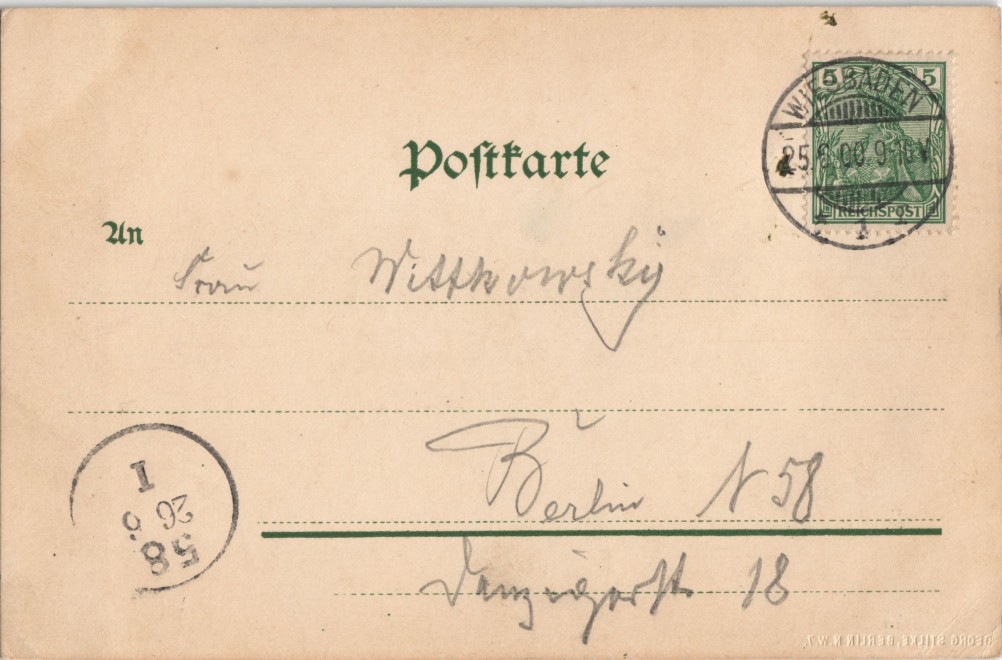 Postkarte
5 5
WIESBADEN
25.6.00.9-10V.
1
REICHSPOST
An
Frau Wittkowsky
Berlin N 58
Danzigerstr. 18
58
26 6
I
GEORG STILKE, BERLIN N.W.7.